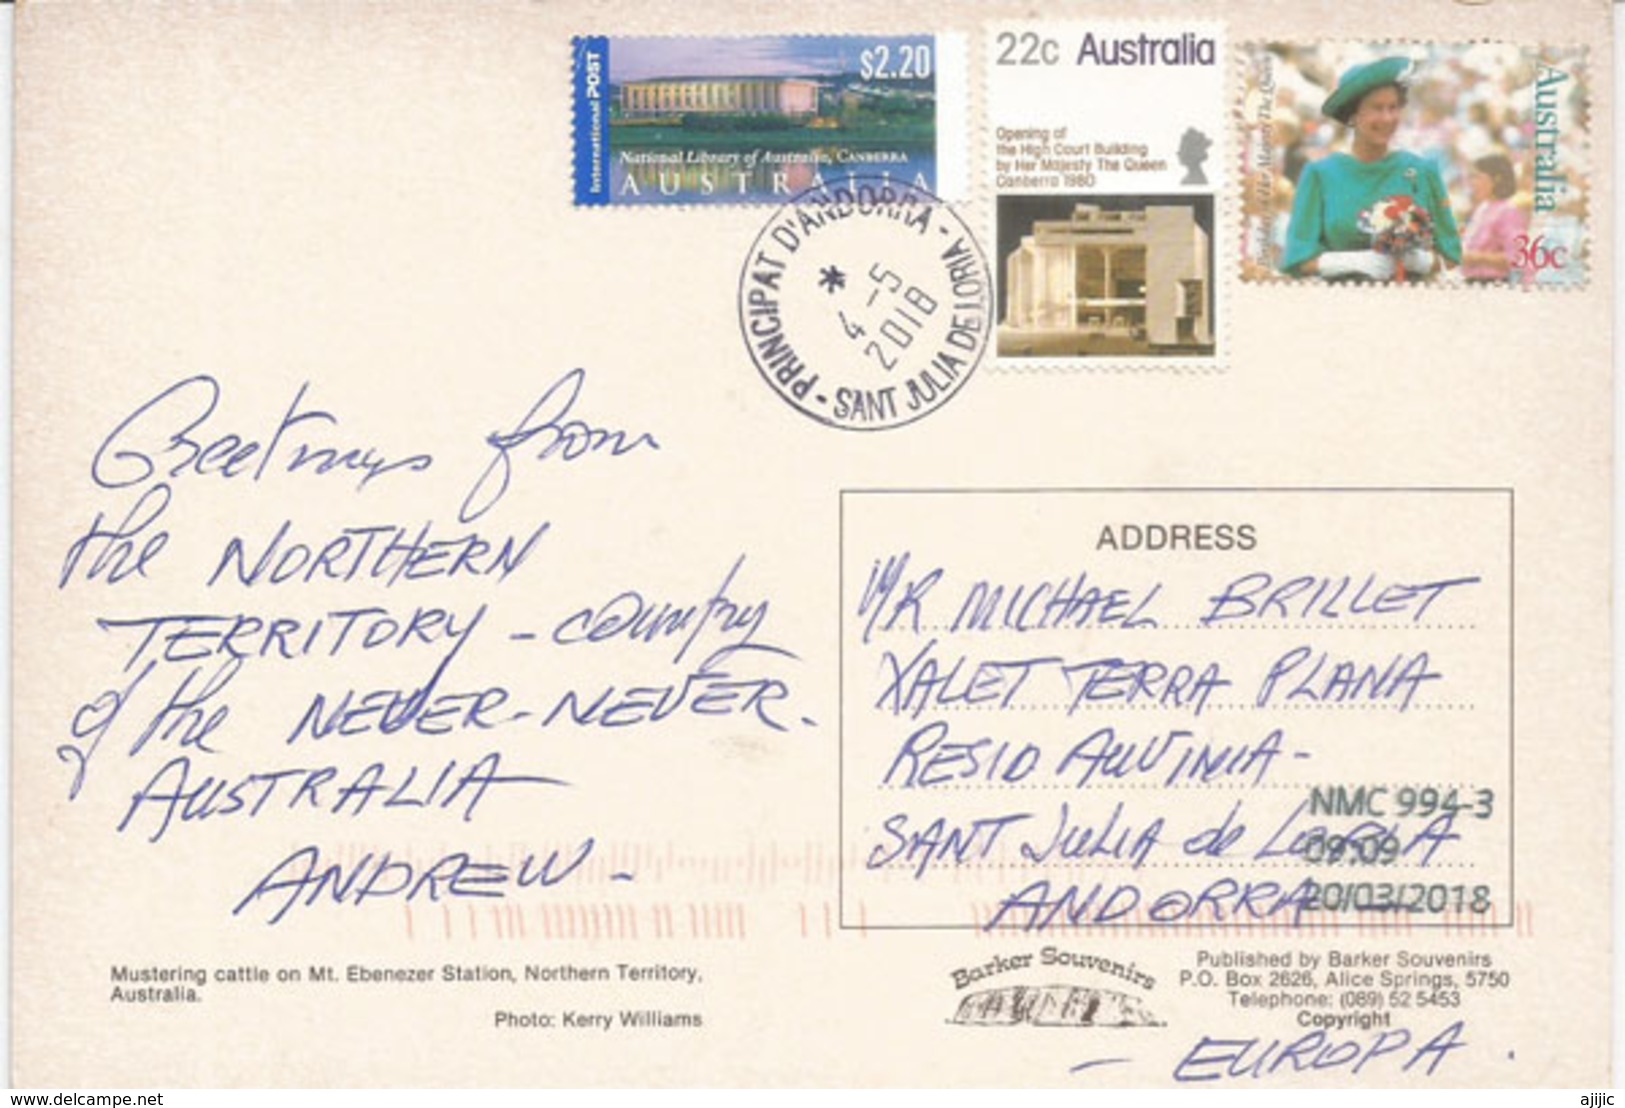 International POST
$2.20
National Library of Australia, CANBERRA
AUSTRALIA
22c Australia
Opening of
the High Court Building
by Her Majesty The Queen
Canberra 1980
Australia
36c
PRINCIPAT D'ANDORRA -
* 4 -5
2018
- SANT JULIA DE LORIA
Greetings from
the NORTHERN
TERRITORY - country
of the NEVER-NEVER.
AUSTRALIA
ANDREW -
ADDRESS
MR MICHAEL BRILLET
XALET TERRA PLANA
RESID AUVINIA -
SANT JULIA de LORIA
ANDORRA
NMC 994-3
09:09
20/03/2018
Mustering cattle on Mt. Ebenezer Station, Northern Territory,
Australia.
Photo: Kerry Williams
Barker Souvenirs
Published by Barker Souvenirs
P.O. Box 2626, Alice Springs, 5750
Telephone: (089) 52 5453
Copyright
- EUROPA.
www.delcampe.net
ajijic